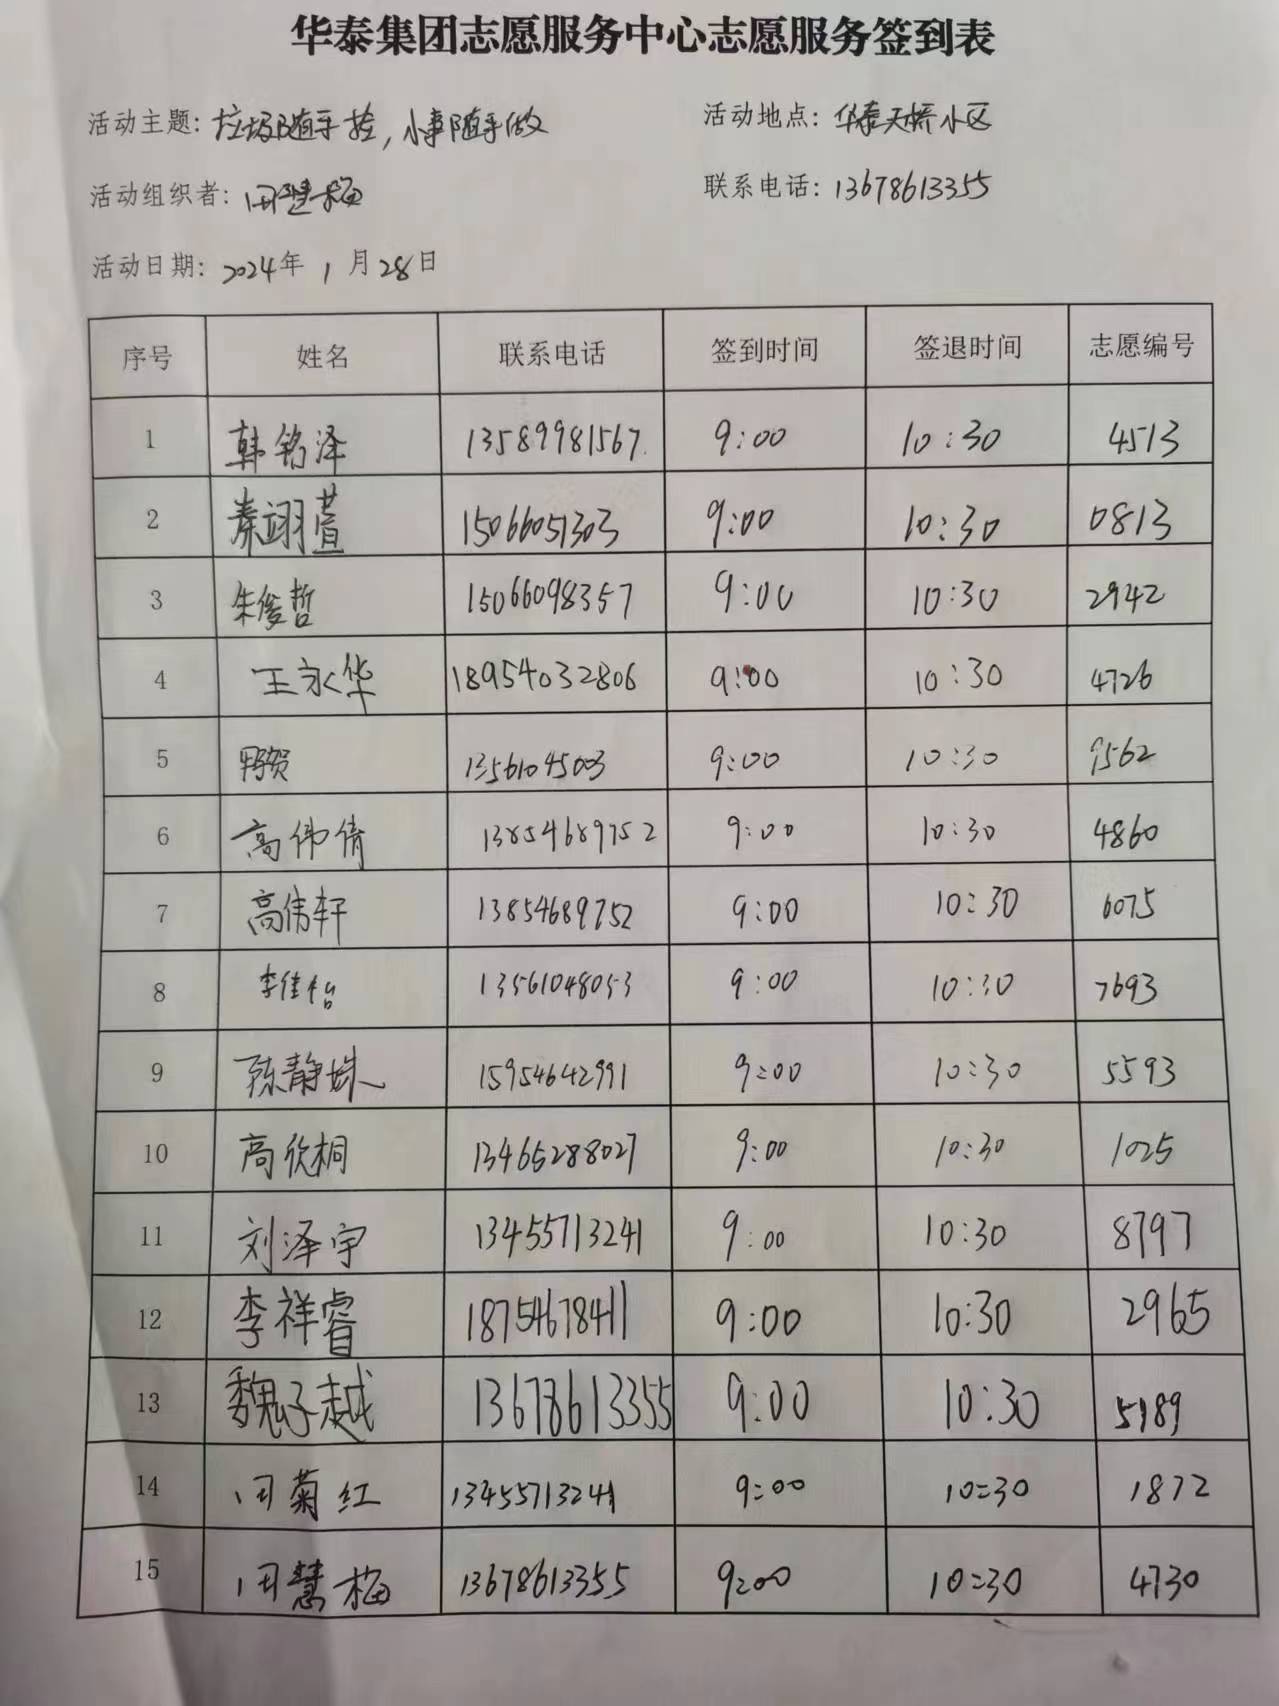 华泰集团志愿服务中心志愿服务签到表
活动主题：垃圾随手捡，小事随手做 活动地点：华泰天桥小区
活动组织者：田慧梅 联系电话：13678613355
活动日期：2024年 1月28日
序号 姓名 联系电话 签到时间 签退时间 志愿编号
1 韩铭泽 13589981567 9:00 10:30 4513
2 秦翊萱 15066051303 9:00 10:30 0813
3 朱俊哲 15066098357 9:00 10:30 2942
4 王永华 18954032806 9:00 10:30 4726
5 9:00 10:30 9562
6 高伟倩 13854689752 9:00 10:30 4860
7 高伟轩 13854689752 9:00 10:30 6075
8 李佳怡 13561048053 9:00 10:30 7693
9 陈静姝 15954642991 9:00 10:30 5593
10 高欣桐 13465288027 9:00 10:30 1025
11 刘泽宇 13455713241 9:00 10:30 8797
12 李祥睿 18754678411 9:00 10:30 2965
13 魏子越 13678613355 9:00 10:30 5989
14 田菊红 13455713241 9:00 10:30 1872
15 田慧梅 13678613355 9:00 10:30 4730